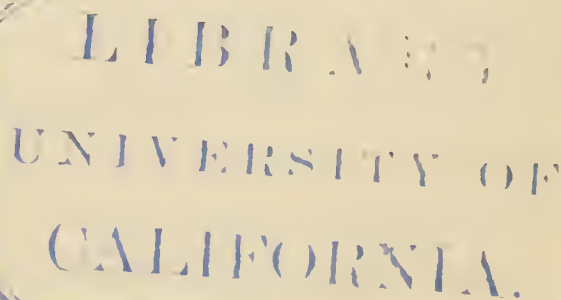 LIBRARY
UNIVERSITY OF
CALIFORNIA.